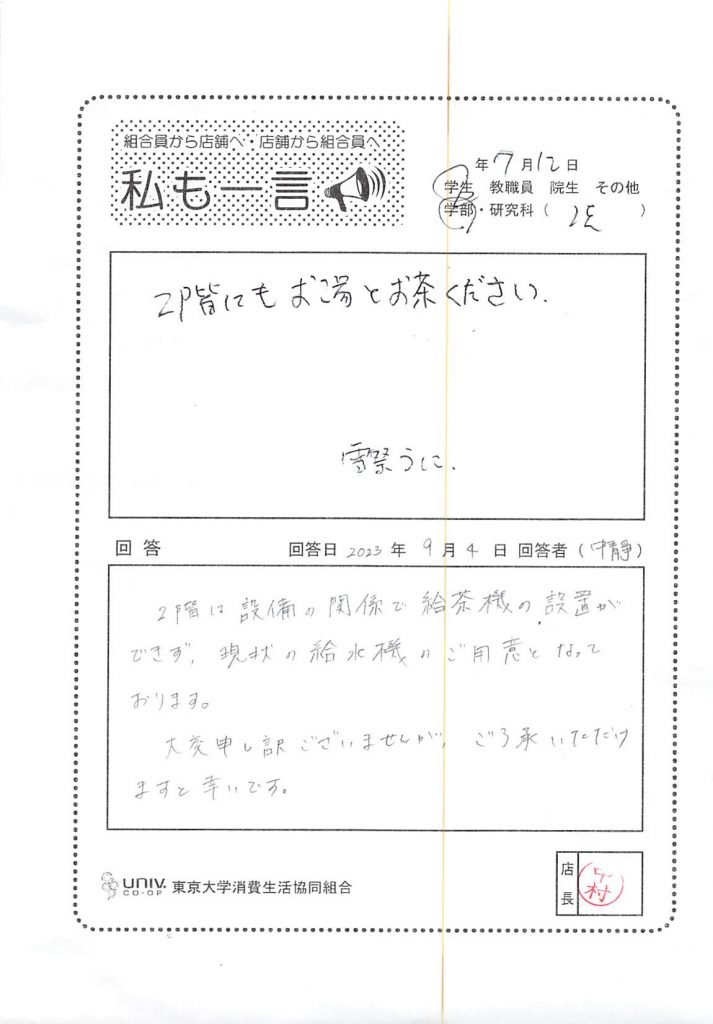 組合員から店舗へ・店舗から組合員へ
私も一言
年7月12日
学生 教職員 院生 その他
学部・研究科( )
2階にもお湯とお茶ください.
雪祭うに.
回答 回答日 2023年 9月4日 回答者(中静)
2階は設備の関係で給茶機の設置が
できず、現状の給水機のご用意となって
おります。
大変申し訳ございませんが、ご了承いただけ
ますと幸いです。
UNIV. CO-OP 東京大学消費生活協同組合
店長